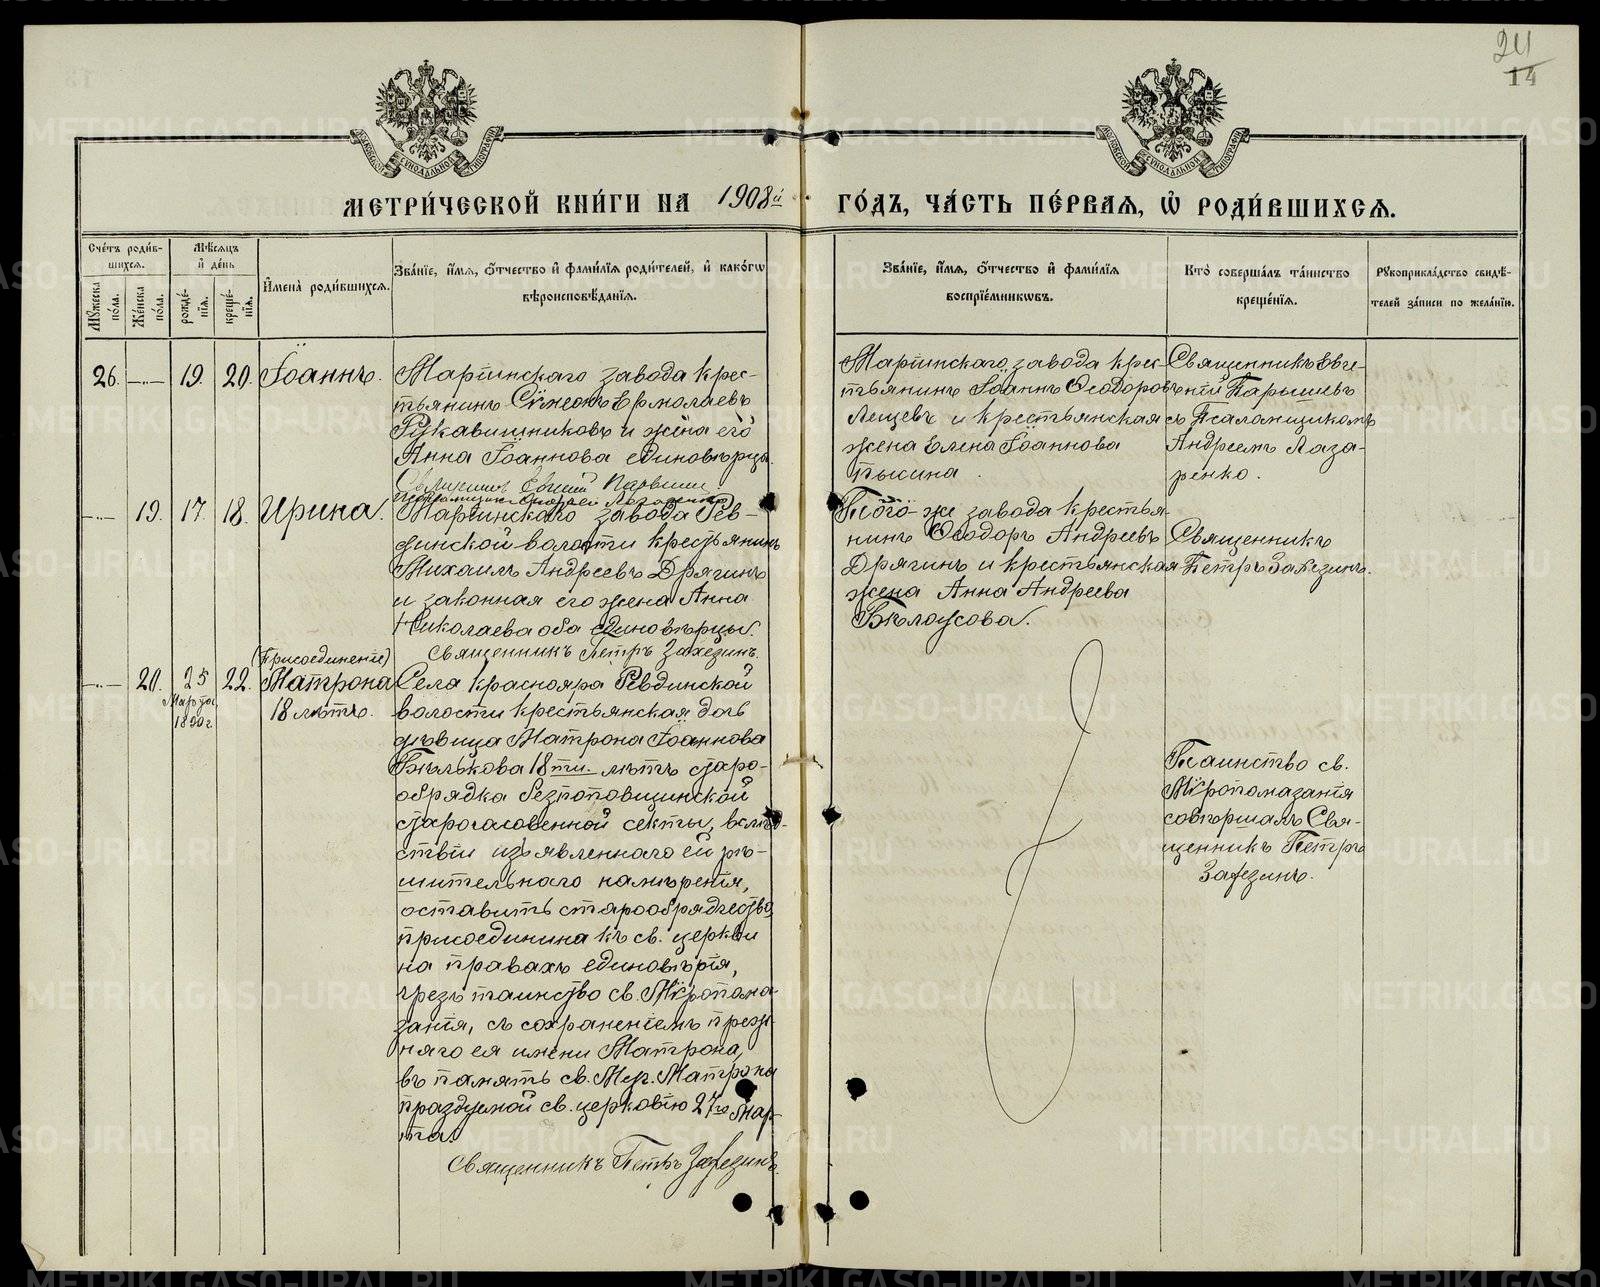 24
14
МЕТРИ́ЧЕСКОЙ КНИ́ГИ НА 1908й ГО́ДЪ, ЧА́СТЬ ПЕ́РВАЯ, Ѡ РОДИ́ВШИХСЯ.
Сче́тъ роди́в-
шихся.
Му́жеска по́ла.
Же́нска по́ла.
Мѣ́сяцъ
и де́нь
рожде́-
нія.
креще́-
нія.
Имена̀ роди́вшихся.
Зва́ніе, и́мя, о́тчество и фами́лія роди́телей, и како́гѡ
вѣроисповѣ́данія.
Зва́ніе, и́мя, о́тчество и фами́лія
воспріе́мникѡвъ.
Кто̀ соверша́лъ та́инство
креще́нія.
Рукоприкла́дство свидѣ́-
телей за́писи по жела́нію.
26. 19. 20. Іоаннъ.
Маріинскаго завода крес-
тьянинъ Сѵмеонъ Ермолаевъ
Рукавишниковъ и жена его
Анна Іоаннова единовѣрцы.
Священникъ Евгеній Парышевъ
Псаломщикъ Андрей Лазаренко
Маріинскаго завода крес-
тьянинъ Іоаннъ Ѳеодоровъ
Лещевъ и крестьянская
жена Елена Іоаннова
Пысина.
Священникъ Евге-
ній Парышевъ
съ Псаломщикомъ
Андреемъ Лаза-
ренко.
19. 17. 18. Ирина.
Маріинскаго завода Рев-
динской волости крестьянинъ
Михаилъ Андреевъ Дрягинъ
и законная его жена Анна
Николаева оба единовѣрцы.
Священникъ Петръ Заѳезинъ.
Того же завода крестья-
нинъ Ѳеодоръ Андреевъ
Дрягинъ и крестьянская
жена Анна Андреева
Бѣлоусова.
Священникъ
Петръ Заѳезинъ.
(Присоединеніе)
20. 25 22. Матрона
Марта 18 лѣтъ.
1890 г.
Села Краснояра Ревдинской
волости крестьянская дочь
дѣвица Матрона Іоаннова
Бѣлькова 18ти лѣтъ старо-
обрядка безпоповщинской
старогасовенной секты, вслѣд-
ствіи изъявленнаго ей рѣ-
шительнаго намѣренія,
оставить старообрядчество,
присоединина къ св. церкви
на правахъ единовѣрія,
чрезъ таинство св. Мѵропома-
занія, съ сохраненіемъ преж-
няго ея имени Матрона,
въ память св. Муч. Матроны
празднуемой св. церковію 27го Мар-
та.
Священникъ Петръ Заѳезинъ.
Таинство св.
Мѵропомазанія
совершалъ Свя-
щенникъ Петръ
Заѳезинъ.
METRIKI.GASO-URAL.RU